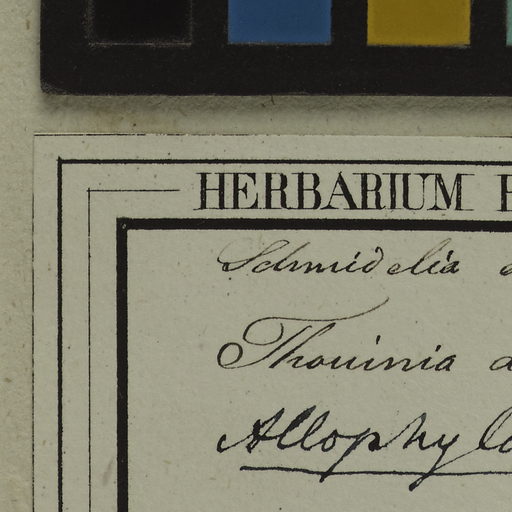 HERBARIUM
Schmidelia
Thouinia
Allophyl